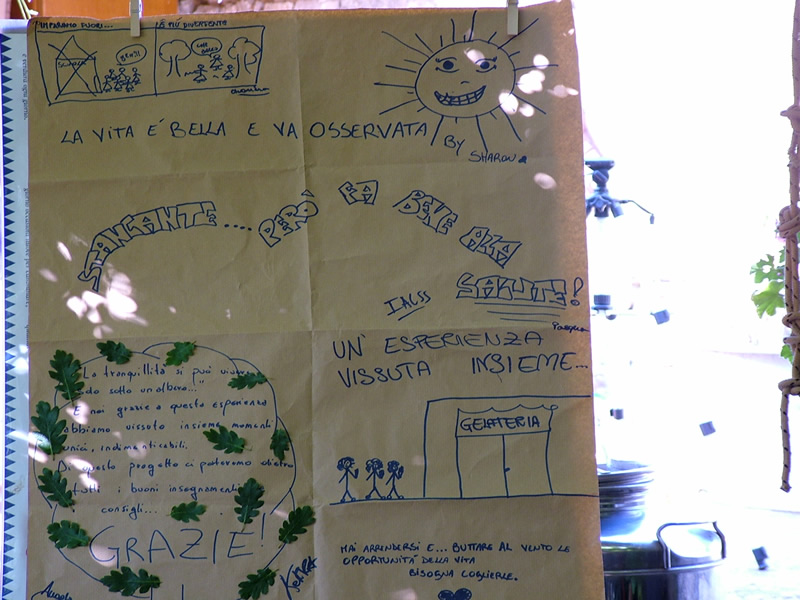 IMPARIAMO FUORI...
LA PIÙ DIVERTENTE
SCUOLA
LA VITA E' BELLA E VA OSSERVATA
BY SHARON
STANCANTE.... PERÒ FA BENE ALLA
SALUTE!
UN' ESPERIENZA
VISSUTA INSIEME...
GELATERIA
"La tranquillità si può vivere
sotto un albero..."
E noi grazie a questa esperienza
abbiamo vissuto insieme momenti
unici, indimenticabili.
Di questo progetto ci porteremo dietro
tutti i buoni insegnamenti
consigli...
GRAZIE!
MAI ARRENDERSI E... BUTTARE AL VENTO LE
OPPORTUNITÀ DELLA VITA
BISOGNA COGLIERLE.